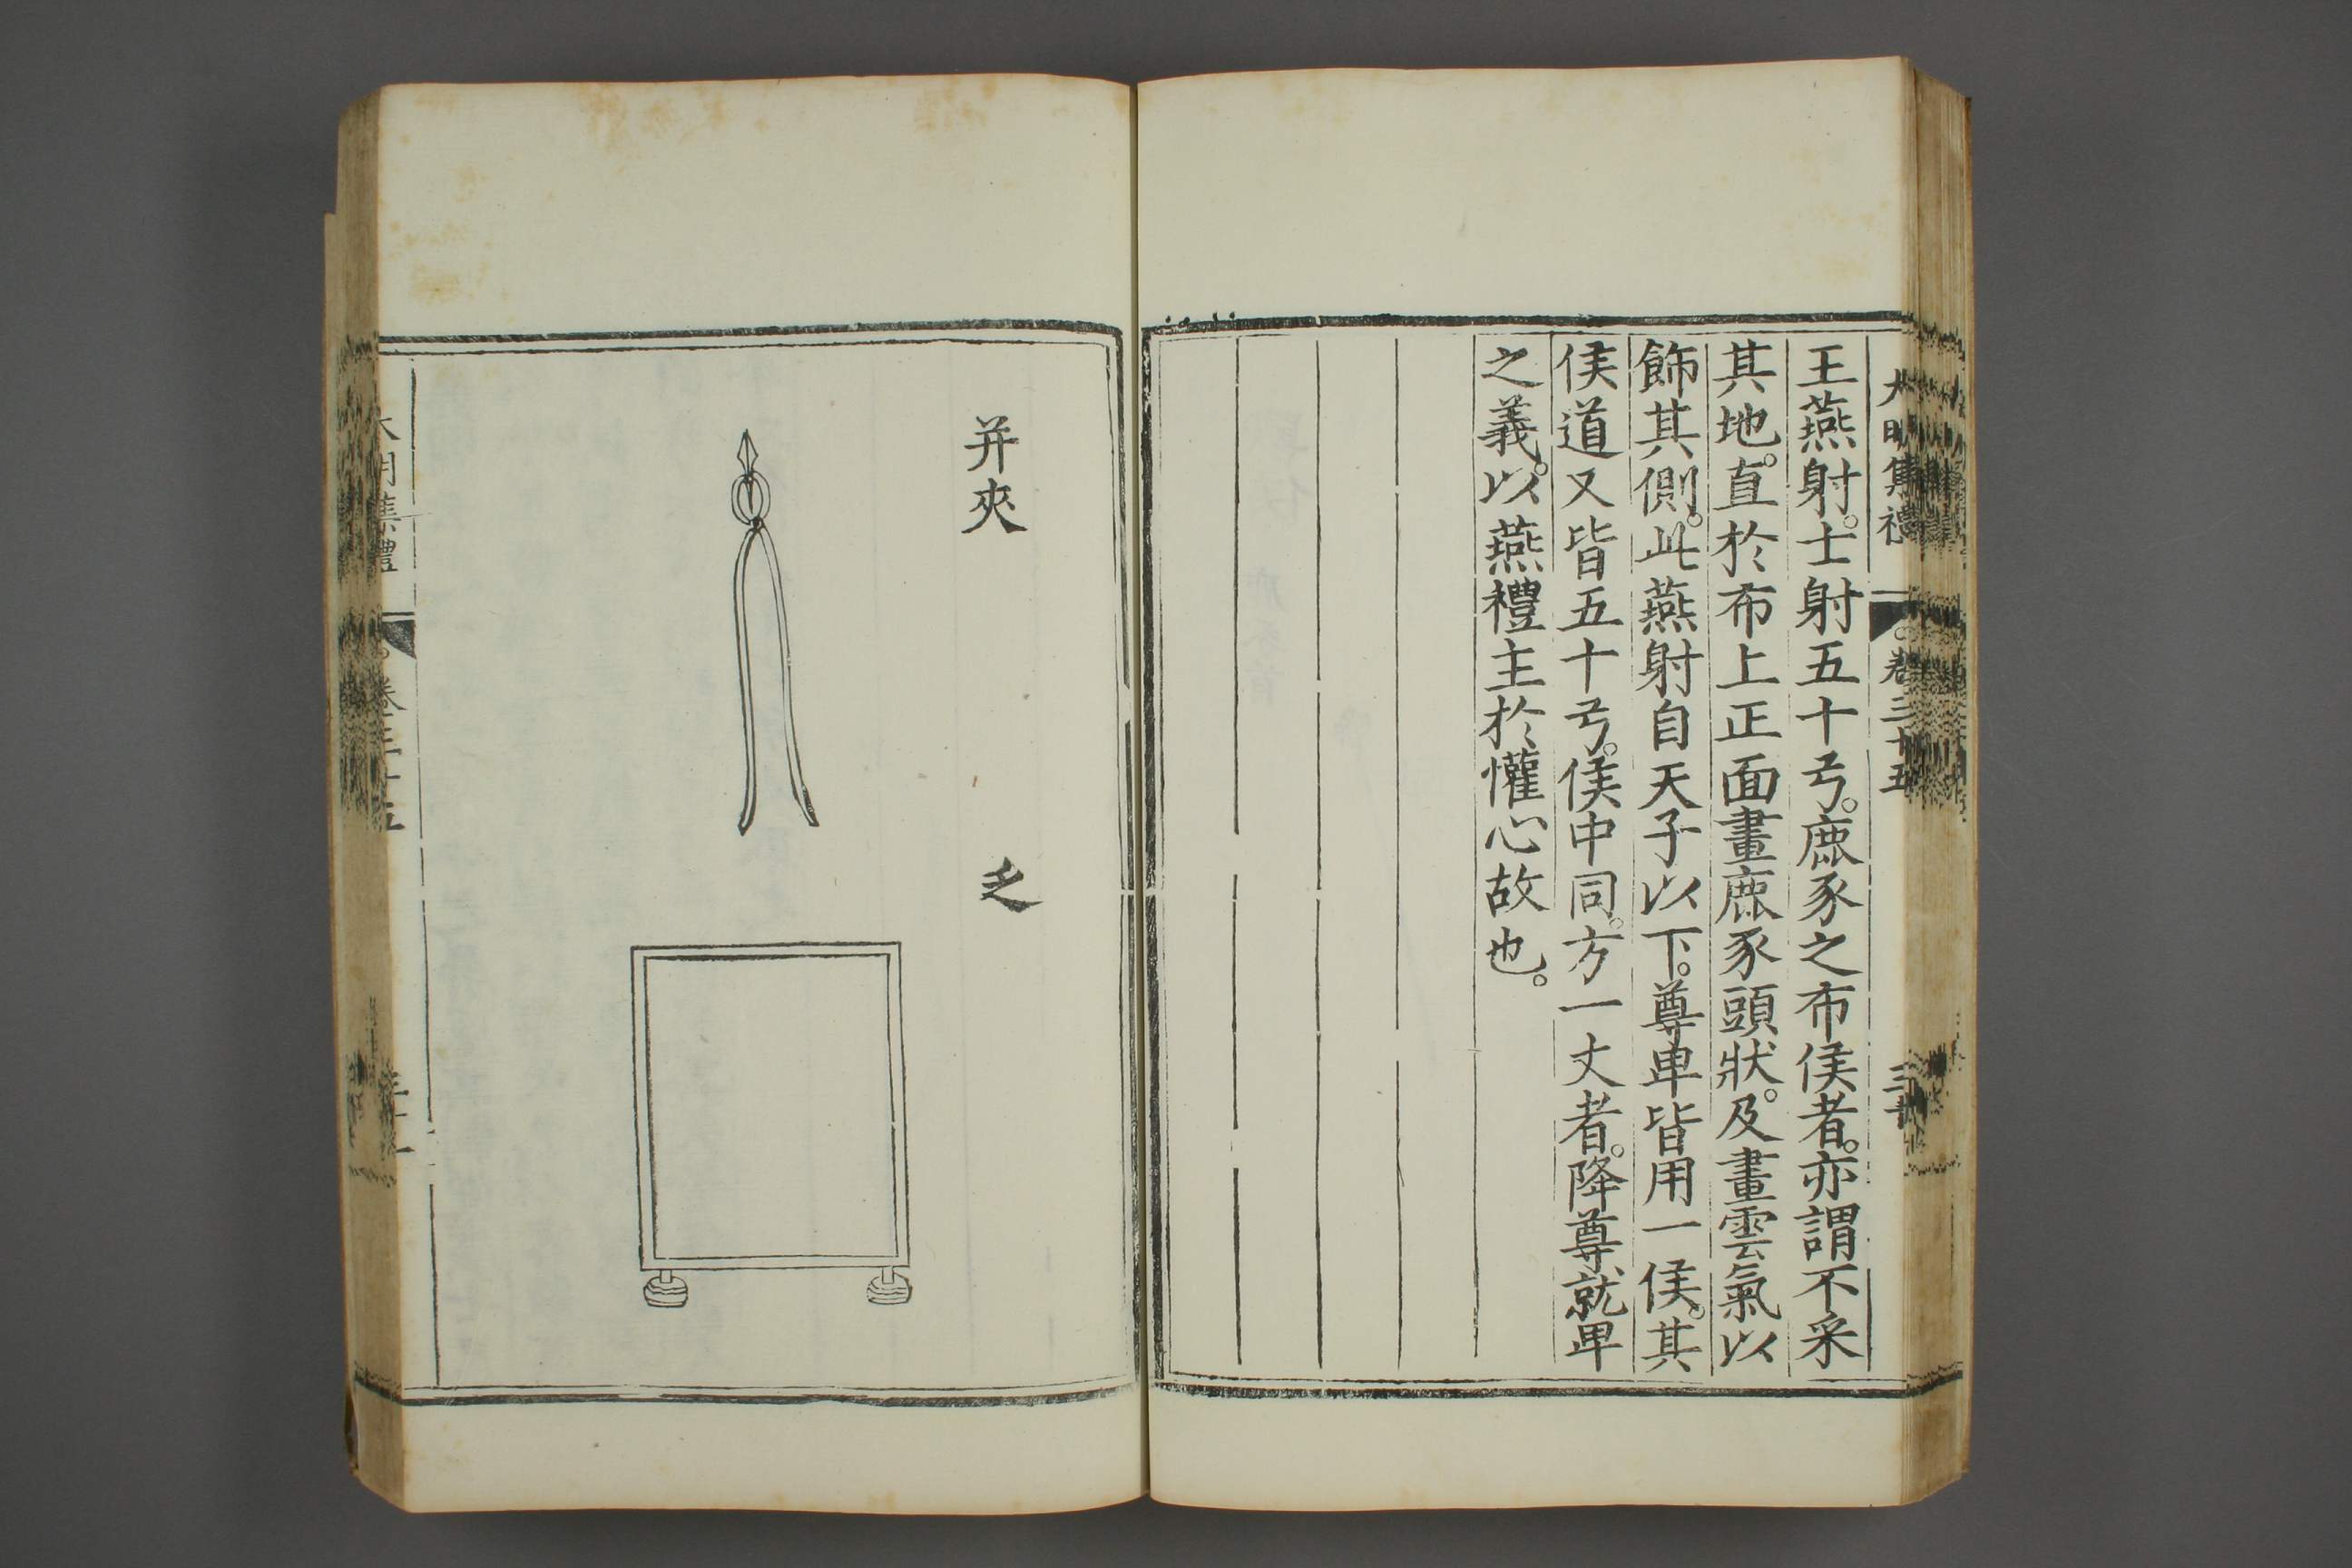 大明集禮 卷三十五 三十
王燕射。士射五十弓。鹿豕之布侯者。亦謂不采
其地。直於布上正面畫鹿豕頭狀。及畫雲氣以
飾其側。此燕射自天子以下。尊卑皆用一侯。其
侯道又皆五十弓。侯中同。方一丈者。降尊就卑
之義。以燕禮主於懽心故也。
并夾
乏
大明集禮 卷三十五 三十一